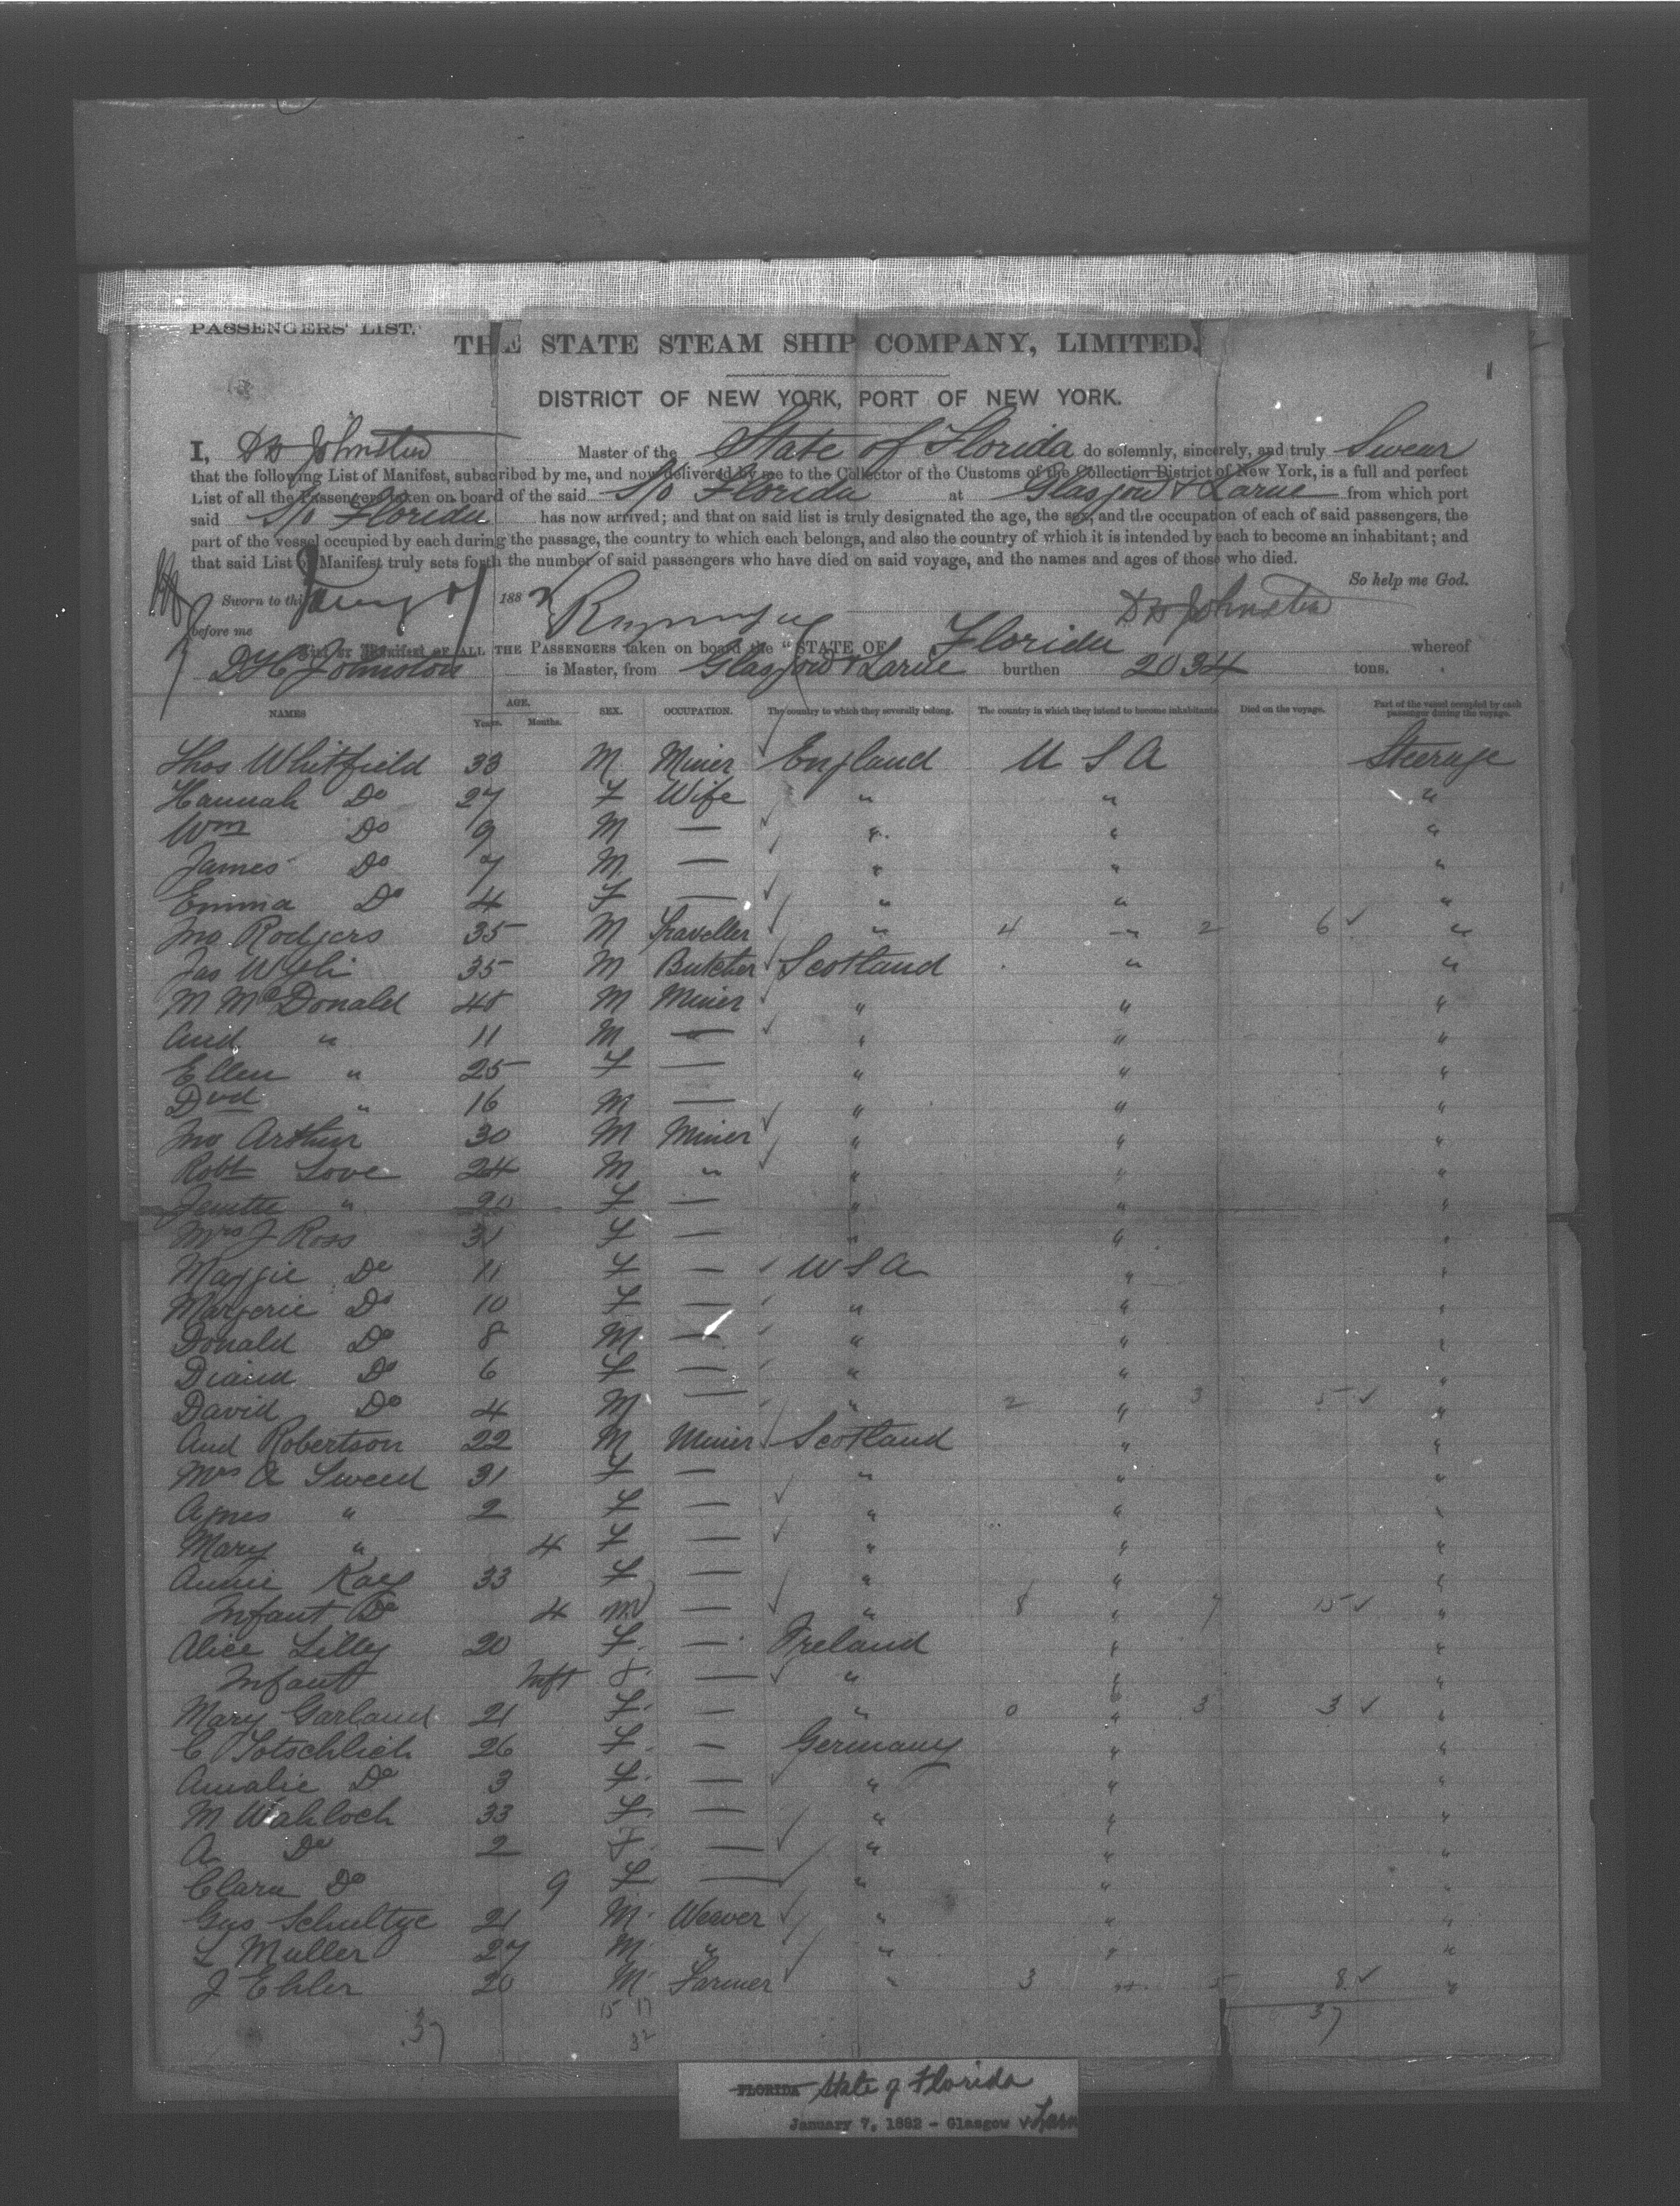 PASSENGERS' LIST.
THE STATE STEAM SHIP COMPANY, LIMITED.
DISTRICT OF NEW YORK, PORT OF NEW YORK.
I, D H Johnston Master of the State of Florida do solemnly, sincerely, and truly Swear
that the following List of Manifest, subscribed by me, and now delivered by me to the Collector of the Customs of the Collection District of New York, is a full and perfect
List of all the Passengers taken on board of the said S/o Florida at Glasgow & Larne from which port
said S/o Florida has now arrived; and that on said list is truly designated the age, the sex, and the occupation of each of said passengers, the
part of the vessel occupied by each during the passage, the country to which each belongs, and also the country of which it is intended by each to become an inhabitant; and
that said List of Manifest truly sets forth the number of said passengers who have died on said voyage, and the names and ages of those who died.
So help me God.
Sworn to this Jany 7 1882
before me D H Johnston
List or Manifest OF ALL THE PASSENGERS taken on board the "STATE OF Florida whereof
D H Johnston is Master, from Glasgow & Larne burthen 2034 tons.
NAMES AGE. Years. Months. SEX. OCCUPATION. The country to which they severally belong. The country in which they intend to become inhabitants Died on the voyage. Part of the vessel occupied by each passenger during the voyage.
Thos Whitfield 33 M Miner England U S A Steerage
Hannah Do 27 F Wife " " "
Wm Do 9 M — " " "
James Do 7 M — " " "
Emma Do 4 F — " " "
Jno Rodgers 35 M Traveller " 4 " 2 6 "
Jas Wyli 35 M Butcher Scotland " "
M McDonald 45 M Miner " " "
And " 11 M — " " "
Ellen " 25 F — " " "
Dvd " 16 M — " " "
Jno Arthur 30 M Miner " " "
Robt Love 24 M " " " "
Jenette " 20 F — " " "
Mrs J Ross 31 F — " " "
Maggie Do 11 F — U S A " "
Marjerie Do 10 F — " " "
Donald Do 8 M — " " "
Diand Do 6 F — " " "
David Do 4 M — " 2 " 3 5 "
And Robertson 22 M Miner Scotland " "
Mrs A Sweed 31 F — " " "
Agnes " 2 F — " " "
Mary " 4 F — " " "
Annie Kay 33 F — " " "
Infant Do 4 M — " 8 " 7 15 "
Alice Lilly 20 F — Ireland " "
Infant Inft F — " " "
Mary Garland 21 F — " 0 " 3 3 "
C Totschlich 26 F — Germany " "
Amalie Do 3 F — " " "
M Wahloch 33 F — " " "
A Do 2 F — " " "
Clara Do 9 F — " " "
Gus Schultze 21 M Weaver " " "
L Muller 27 M " " " "
J Ehler 20 M Farmer " 3 " 5 8 "
37 15 17 37
32
FLORIDA State of Florida
January 7, 1882 - Glasgow & Larn